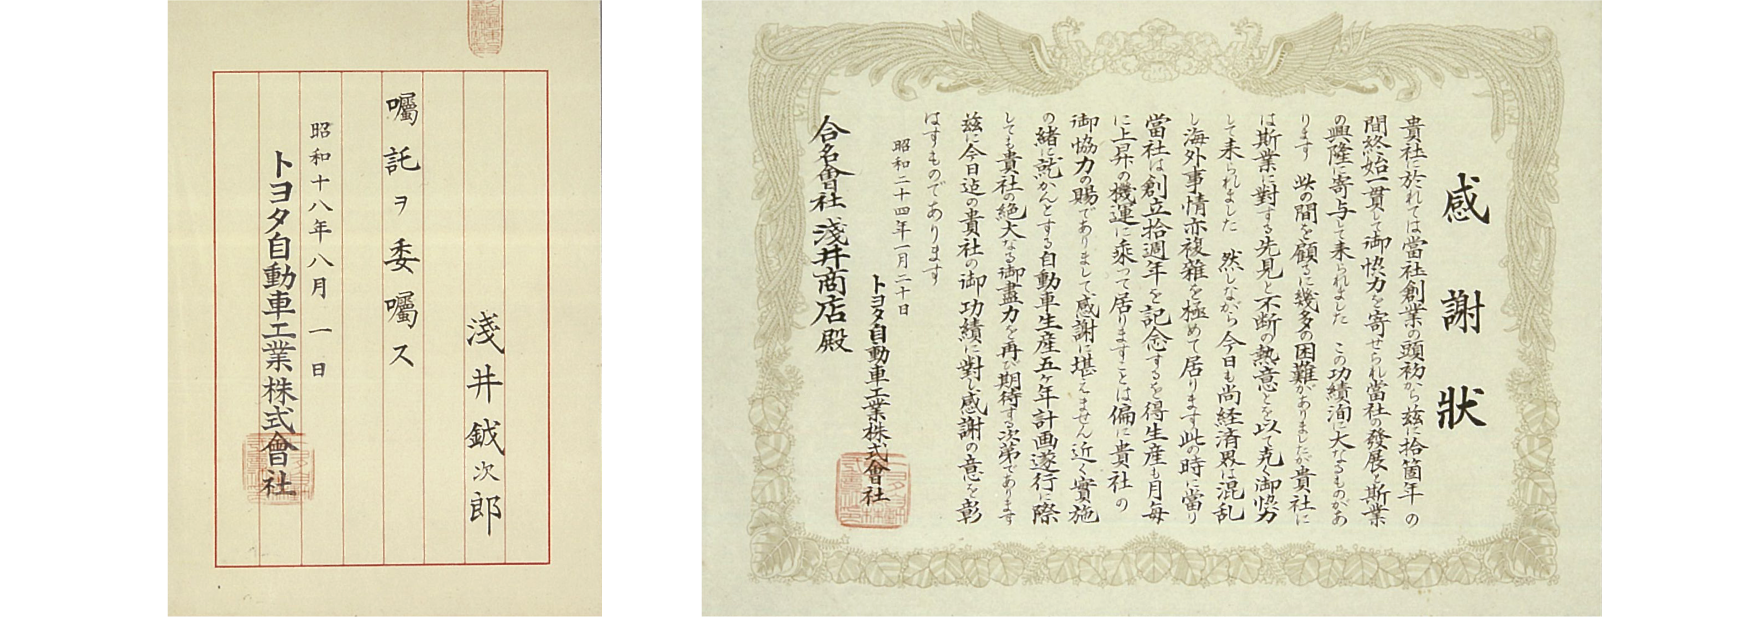 淺井鉞次郎
囑託ヲ委囑ス
昭和十八年八月一日
トヨタ自動車工業株式會社
感謝狀
貴社に於れては當社創業の頭初から茲に拾箇年の
間終始一貫して御協力を寄せられ當社の發展と斯業
の興隆に寄与して来られました この功績洵に大なるものがあ
ります 此の間を顧るに幾多の困難がありましたが貴社に
は斯業に對する先見と不断の熱意とを以て克く御協力
して来られました 然しながら今日も尚経済界は混乱
し海外事情亦複雑を極めて居ります此の時に當り
當社は創立拾週年を記念するを得生産も月毎
に上昇の機運に乘って居りますことは偏に貴社の
御協力の賜でありまして感謝に堪えません近く實施
の緒に就かんとする自動車生産五ヶ年計画遂行に際
しても貴社の絶大なる御盡力を再び期待する次第であります
茲に今日迠の貴社の御功績に對し感謝の意を彰
はすものであります
昭和二十四年一月二十日
トヨタ自動車工業株式會社
合名會社淺井商店殿